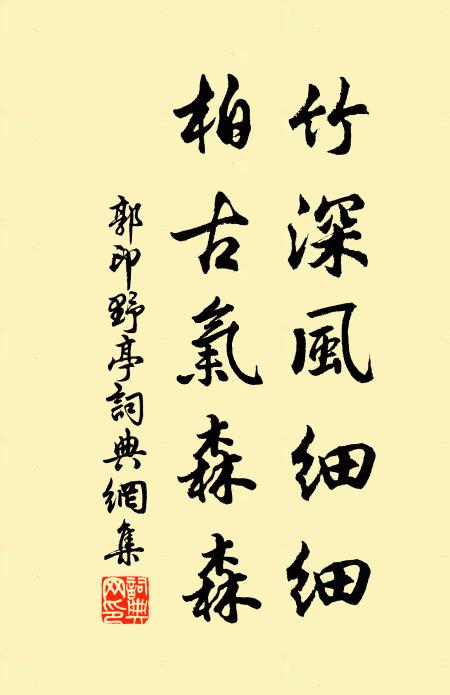 竹深風細細
柏古氣森森
郭印野亭詞典網集
詞典网印